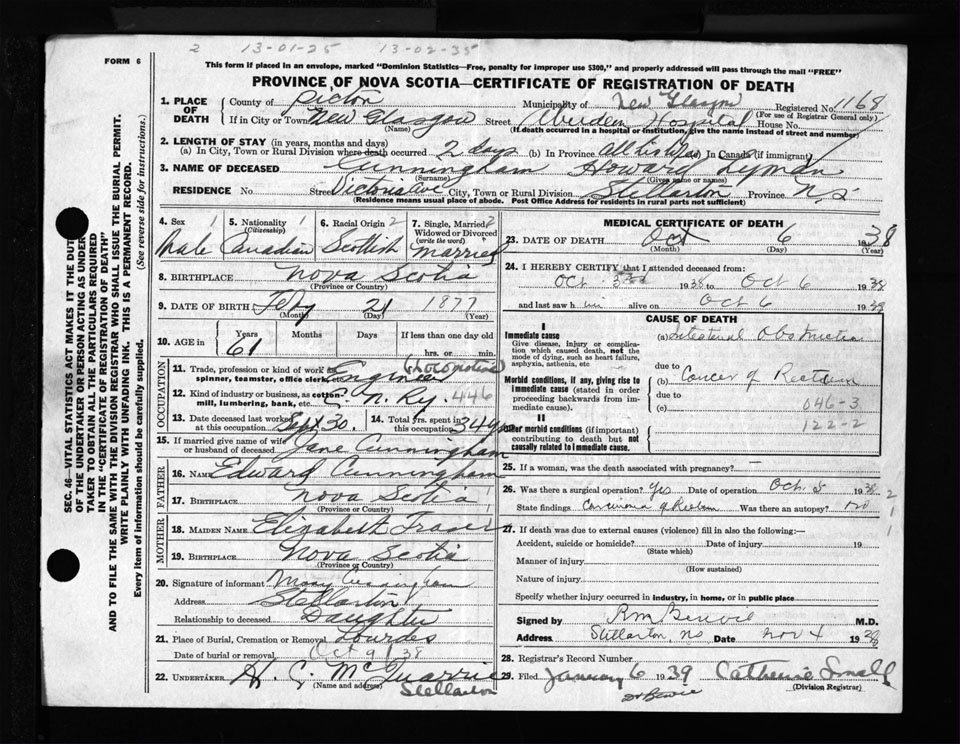 2 13-01-25 13-02-35
FORM 6
This form if placed in an envelope, marked "Dominion Statistics—Free, penalty for improper use $300," and properly addressed will pass through the mail "FREE"
PROVINCE OF NOVA SCOTIA—CERTIFICATE OF REGISTRATION OF DEATH
1. PLACE OF DEATH County of Pictou Municipality of New Glasgow Registered No. 1168
If in City or Town New Glasgow (Name) Street Aberdeen Hospital House No. (For use of Registrar General only)
(If death occurred in a hospital or institution, give the name instead of street and number)
2. LENGTH OF STAY (in years, months and days)
(a) In City, Town or Rural Division where death occurred 2 days (b) In Province all his life (c) In Canada (if immigrant)
3. NAME OF DECEASED Cunningham Howard Lyman
(Surname) (Given name or names)
RESIDENCE No Street Victoria Ave City, Town or Rural Division Stellarton Province N.S
(Residence means usual place of abode. Post Office Address for residents in rural parts not sufficient)
4. Sex 1 Male
5. Nationality (Citizenship) 1 Canadian
6. Racial Origin 2 Scottish
7. Single, Married, Widowed or Divorced (write the word) 2 Married
8. BIRTHPLACE Nova Scotia
(Province or Country)
9. DATE OF BIRTH Feby 21 1877
(Month) (Day) (Year)
10. AGE in Years 61 Months Days If less than one day old
hrs. or min.
OCCUPATION
11. Trade, profession or kind of work as spinner, teamster, office clerk, Engineer (Locomotive)
12. Kind of industry or business, as cotton mill, lumbering, bank, etc. C. N. Ry. 446
13. Date deceased last worked at this occupation Sept 30. 14. Total yrs. spent in this occupation 34 yrs
15. If married give name of wife or husband of deceased Jane Cunningham
FATHER
16. NAME Edward Cunningham
17. BIRTHPLACE Nova Scotia 1
(Province or Country)
MOTHER
18. MAIDEN NAME Elizabeth Fraser
19. BIRTHPLACE Nova Scotia
(Province or Country)
20. Signature of informant Mary Cunningham
Address Stellarton
Relationship to deceased Daughter
21. Place of Burial, Cremation or Removal Lourdes
Date of burial or removal Oct 9/38
22. UNDERTAKER H. C. McQuarrie
(Name and address) Stellarton
MEDICAL CERTIFICATE OF DEATH
23. DATE OF DEATH Oct 6 1938
(Month) (Day) (Year)
24. I HEREBY CERTIFY that I attended deceased from:
Oct. 3rd 1938 to Oct 6 1938
and last saw him alive on Oct 6 1938
CAUSE OF DEATH
I
Immediate cause (a) Intestinal Obstruction
Give disease, injury or complication which caused death, not the mode of dying, such as heart failure, asphyxia, asthenia, etc.
due to
Morbid conditions, if any, giving rise to immediate cause (stated in order proceeding backwards from immediate cause). (b) Cancer of Rectum
due to
(c) 046-3
II
Other morbid conditions (if important) contributing to death but not causally related to immediate cause. 122-2
25. If a woman, was the death associated with pregnancy? —
26. Was there a surgical operation? Yes Date of operation Oct. 5 1938 2
State findings Carcinoma of Rectum Was there an autopsy? no 1
27. If death was due to external causes (violence) fill in also the following:—
Accident, suicide or homicide? Date of injury 19
(State which)
Manner of injury
(How sustained)
Nature of injury
Specify whether injury occurred in industry, in home, or in public place
Signed by M.D.
Address Stellarton, NS Date Nov 4 1938
28. Registrar's Record Number
29. Filed January 6 1939 Catherine Small
(Division Registrar)
SEC. 46—VITAL STATISTICS ACT MAKES IT THE DUTY
OF THE UNDERTAKER OR PERSON ACTING AS UNDER-
TAKER TO OBTAIN ALL THE PARTICULARS REQUIRED
IN THE "CERTIFICATE OF REGISTRATION OF DEATH"
AND TO FILE THE SAME WITH THE DIVISION REGISTRAR WHO SHALL ISSUE THE BURIAL PERMIT.
WRITE PLAINLY WITH UNFADING INK. THIS IS A PERMANENT RECORD.
Every item of information should be carefully supplied. (See reverse side for instructions.)